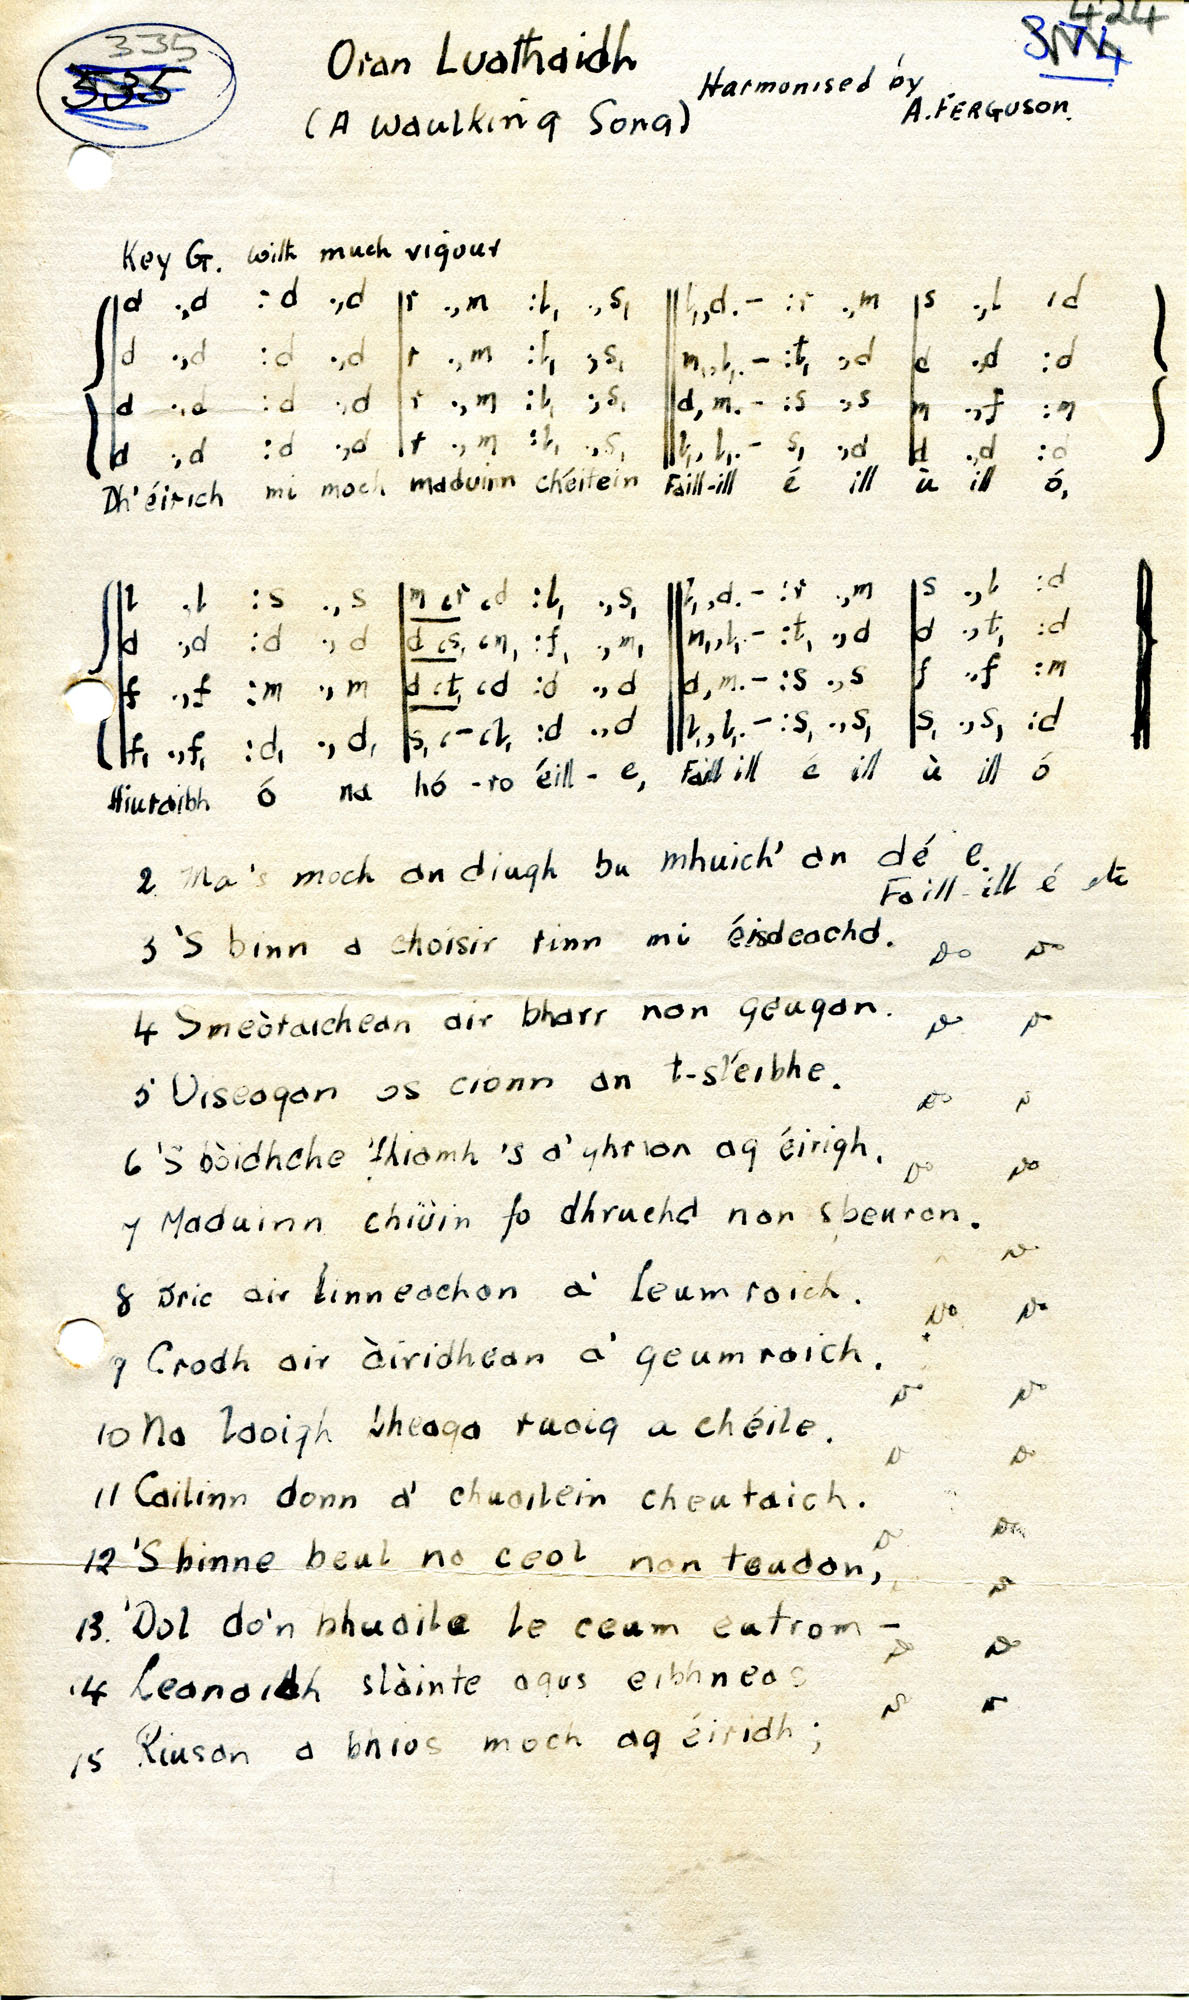 335
335
424
374
Oran Luathaidh
(A Waulking Song)
Harmonised by
A. FERGUSON.
Key G. with much vigour
d .,d :d .,d | r .,m :l, .,s, || l,,d.- :r .,m | s .,l :d
d .,d :d .,d | r .,m :l, .,s, || m,,l,.- :t, .,d | d .,d :d
d .,d :d .,d | r .,m :l, .,s, || d,m.- :s .,s | m .,f :m
d .,d :d .,d | r .,m :l, .,s, || l,,l,.- s, .,d | d .,d :d
Dh'éirich mi moch maduinn chéitein Faill-ill é ill ù ill ó,
l .,l :s .,s | m ,r ,d :l, .,s, || l,,d.- :r .,m | s .,l :d
d .,d :d .,d | d ,s, ,m, :f, .,m, || m,,l,.- :t, .,d | d .,t, :d
f .,f :m .,m | d ,t, ,d :d .,d || d,m.- :s .,s | f .,f :m
f, .,f, :d, .,d, | s, ,- ,l, :d .,d || l,,l,.- :s, .,s, | s, .,s, :d
Hiuraibh ó na hó-ro éill-e, Faill ill é ill ù ill ó
2 Ma's moch an diugh bu mhuich' an dé e.
Faill-ill é etc
3 'S binn a choisir rinn mi éisdeachd. Do Do
4 Smeòraichean air bharr nan geugan. Do Do
5 Uiseagan os cionn an t-sléibhe. Do Do
6 'S bòidhche fhiamh 's a' ghrian ag éirigh. Do Do
7 Maduinn chiùin fo dhruchd nan speuran. Do
8 Bric air linneachan a' leumraich. Do Do
9 Crodh air àiridhean a' geumraich. Do Do
10 Na laoigh bheaga ruaig a chéile. Do Do
11 Cailinn donn a' chuailein cheutaich. Do Do
12 'S binne beul na ceol nan teudan, Do
13. 'Dol do'n bhuaile le ceum eatrom - Do Do
14 Leanaidh slàinte agus eibhneas Do Do
15 Riusan a bhios moch ag éiridh;